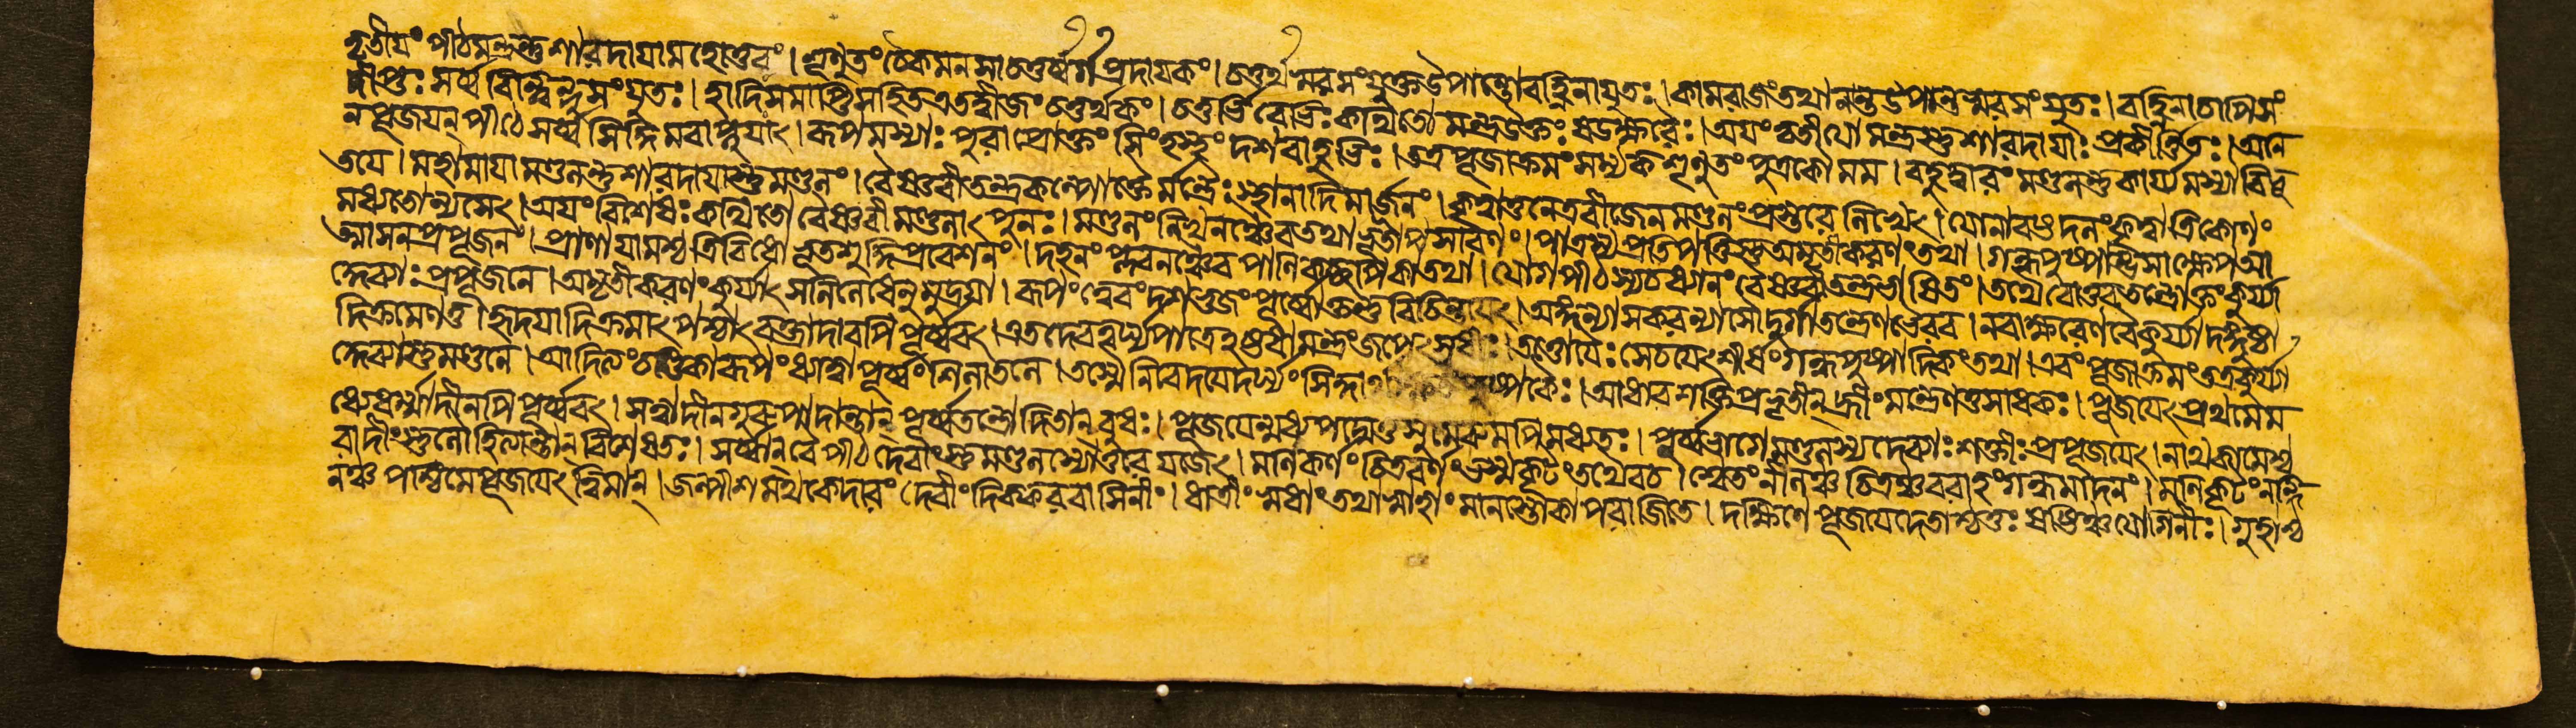 তৃতীযং পীঠমন্ত্রন্তু শারদাযামহোত্তরং । শৃণুতং চৈকমনসা চতুর্ব্বর্গপ্রদাযকং । চতুর্থস্বরসংযুক্ত উপান্তো বহ্নিনাযুতঃ । কামরাজং তথা নন্ত উপান্তস্বরসংযুতঃ । বহ্নিনাচাপি সং
দীপ্তঃ সর্ব্ব বিন্দ্বিন্দুসংযুতঃ । হাদিসমাপ্তিসহিত এতদ্বীজং চতুর্থকং । চতুর্ভিরেভিঃ কথিতো মন্ত্র উক্তঃ ষডক্ষরৈঃ । অযং তৃতীযো মন্ত্রস্তু শারদাযাঃ প্রকীর্ত্তিতঃ । অনে
ন পূজযন্ পীঠে সর্ব্বসিদ্ধিমবাপ্নুযাৎ । রূপমস্যাঃ পুরা প্রোক্তং সিংহস্থং দশবাহুভিঃ । তত্র পূজাক্রমং সম্যক শৃণুতং পুত্রকৌ মম । বহুদ্বারং মণ্ডলন্তু কার্য্যমস্যা বিবৃ
তযে । মহামাযা মণ্ডলন্তু শারদাযাস্তু মণ্ডলং । বৈষ্ণবীতন্ত্রকল্পোক্তৈর্মন্ত্রৈঃ স্থানাদিমার্জনং । কৃত্বা তু নেত্রবীজেন মণ্ডলং প্রস্তরে লিখেৎ ।
মধ্যতো ন্যসেৎ । অযং বিশেষঃ কথিতো বৈষ্ণবী মণ্ডলাৎ পুনঃ । মণ্ডলং লিখনঞ্চৈব তথা ভূতাপসারণং । পাত্রস্য প্রতিপত্তিস্তু অমৃতীকরণং তথা । গন্ধপুষ্পাম্ভসাক্ষেপ আ
ত্মাসনপ্রপূজনং । প্রাণাযামশ্চ ত্রিবিধো ভূতশুদ্ধিপ্রবেশনং । দহনং প্লবনঞ্চৈব পাণিকচ্ছপিকা তথা । যোগপীঠস্য চ ধ্যানং বৈষ্ণবীতন্ত্রভাষিতং । তথৈবোত্তরতন্ত্রোক্তং কুর্য্যা
দ্দেব্যাঃ প্রপূজনে । অমৃতীকরণং কুর্য্যাৎ সলিলে ধেনুমুদ্রযা । রূপং ত্বেবং দশভুজং পূর্ব্বোক্তন্তু বিচিন্তযেৎ । অঙ্গন্যাসকরন্যাসৌ দুর্গাতন্ত্রেণ ভৈরব । নবাক্ষরেণ বৈ কুর্য্যাদঙ্গুষ্ঠা
দিক্রমেণ তু । হৃদযাদিক্রমাৎ পশ্চাৎ বক্ত্রাদাবপি পূর্ব্ববৎ । জপেৎ তোযৈঃ সেচযেৎ শীর্ষং গন্ধপুষ্পাদিকং তথা । এবং পূজাক্রমং তত্র কুর্য্যা
দ্দেব্যাস্তু মণ্ডলে । ধ্যাত্বা পূর্ব্বং শিলাতলে । তস্মৈ নিবেদযেদর্ঘ্যং আধারশক্তিপ্রভৃতীন্ হ্রীং মন্ত্রেণ তু সাধকঃ । পূজযেৎ প্রথমে ম
ধ্যে ধর্ম্মাদীনপি পূর্ব্ববৎ । সত্ত্বাদীন্ গুরুপাদান্তান্ পূর্ব্বতন্ত্রোদিতান্ বুধঃ । পূজযেন্মধ্যপদ্মে তু সুমেরুমপি মধ্যতঃ । পূর্ব্বভাগে মণ্ডলস্য দেব্যাঃ শক্তীঃ প্রপূজযেৎ । নাথকামেশ্ব
রাদীংস্তু লৌহিত্যান্তান্ বিশেষতঃ । সর্ব্বান্ বৈ পীঠদেবীংস্তু মণ্ডলস্যোত্তরে যজেৎ । মণিকর্ণং চিত্ররথং ভস্মকূটং তথৈব চ । শ্বেতং নীলঞ্চ চিত্রঞ্চ বরাহং গন্ধমাদনং । মণিকূটং নন্দি
নঞ্চ পশ্চিমে পূজযেৎ দ্বিমান্ । জল্পীশমথ কেদারং দেবীং দিক্করবাসিনীং । ধাত্রীং স্বধাং তথা স্বাহাং মানস্তোকাপরাজিতে । দক্ষিণে পূজযেদেতাশ্চতুঃষষ্ঠিঞ্চ যোগিনীঃ । গুহ্যাশ্ব